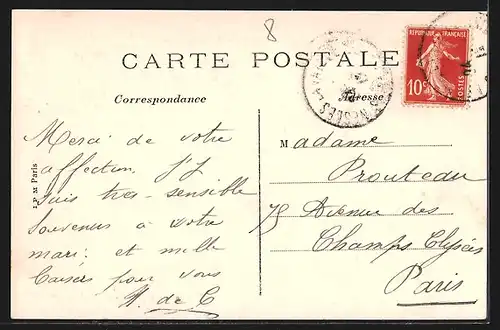 8
CARTE POSTALE
REPUBLIQUE FRANÇAISE
10c
POSTES
Correspondance
Adresse
Merci de votre
affection. J'y
suis très sensible
Souvenirs à votre
mari et mille
baisers pour vous
H. de C
J. P. M Paris
Madame
Prouteau
75 Avenue des
Champs Elysées
Paris